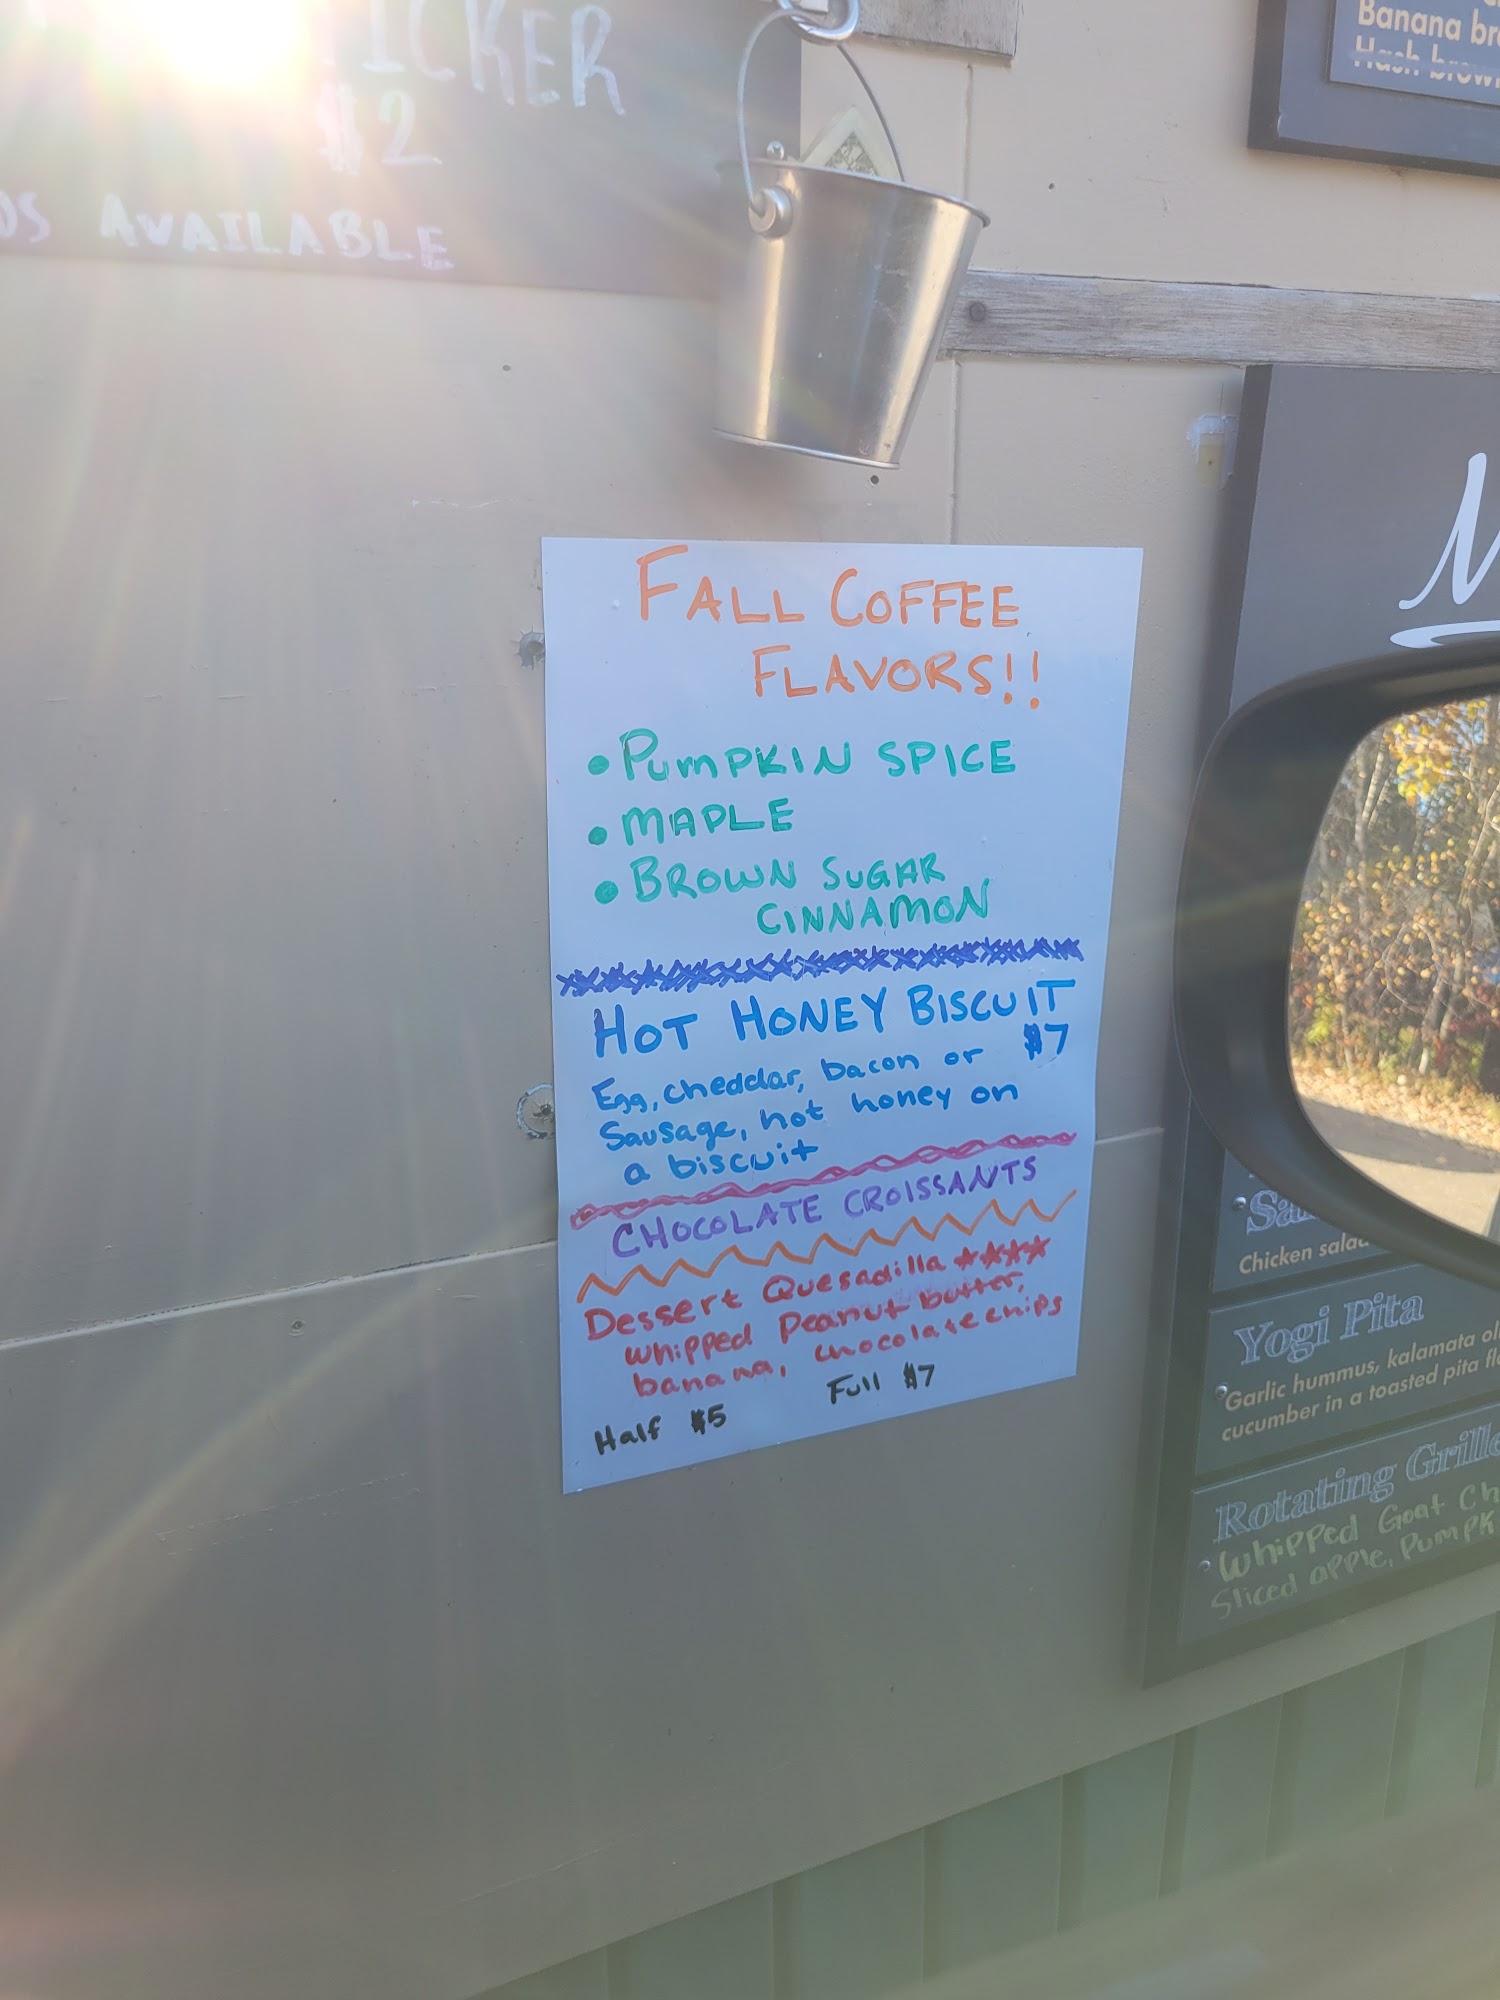 ICKER
$2
DS AVAILABLE
Banana br
Hash brow
FALL COFFEE
FLAVORS!!
• PUMPKIN SPICE
• MAPLE
• BROWN SUGAR
CINNAMON
HOT HONEY BISCUIT
$7
Egg, cheddar, bacon or
Sausage, hot honey on
a biscuit
CHOCOLATE CROISSANTS
Dessert Quesadilla ****
whipped Peanut butter,
banana, chocolate chips
Half $5 Full $7
Chicken salad
Yogi Pita
Garlic hummus, kalamata ol
cucumber in a toasted pita fl
Rotating Grille
Whipped Goat Ch
Sliced apple, Pumpk